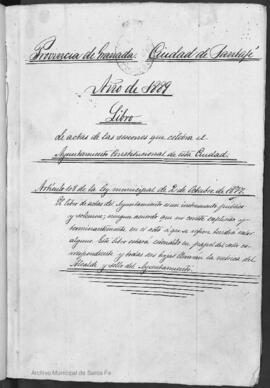 Provincia de Granada. Ciudad de Santafé
Año de 1889
Libro
de actas de las sesiones que celebra el
Ayuntamiento Constitucional de esta Ciudad.
Artículo 108 de la ley municipal de 2 de Octubre de 1877.
El libro de actas del Ayuntamiento es un instrumento público
y solemne; ningun acuerdo que no conste explicita y
terminantemente en el acta á que se refiera tendrá valor
alguno. Este libro estará estendido en papel del sello co-
rrespondiente y todas sus hojas llevarán la rúbrica del
Alcalde y sello del Ayuntamiento.
Archivo Municipal de Santa Fe